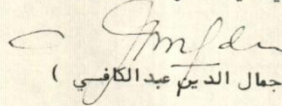 جمال الدين عبد الكافي )